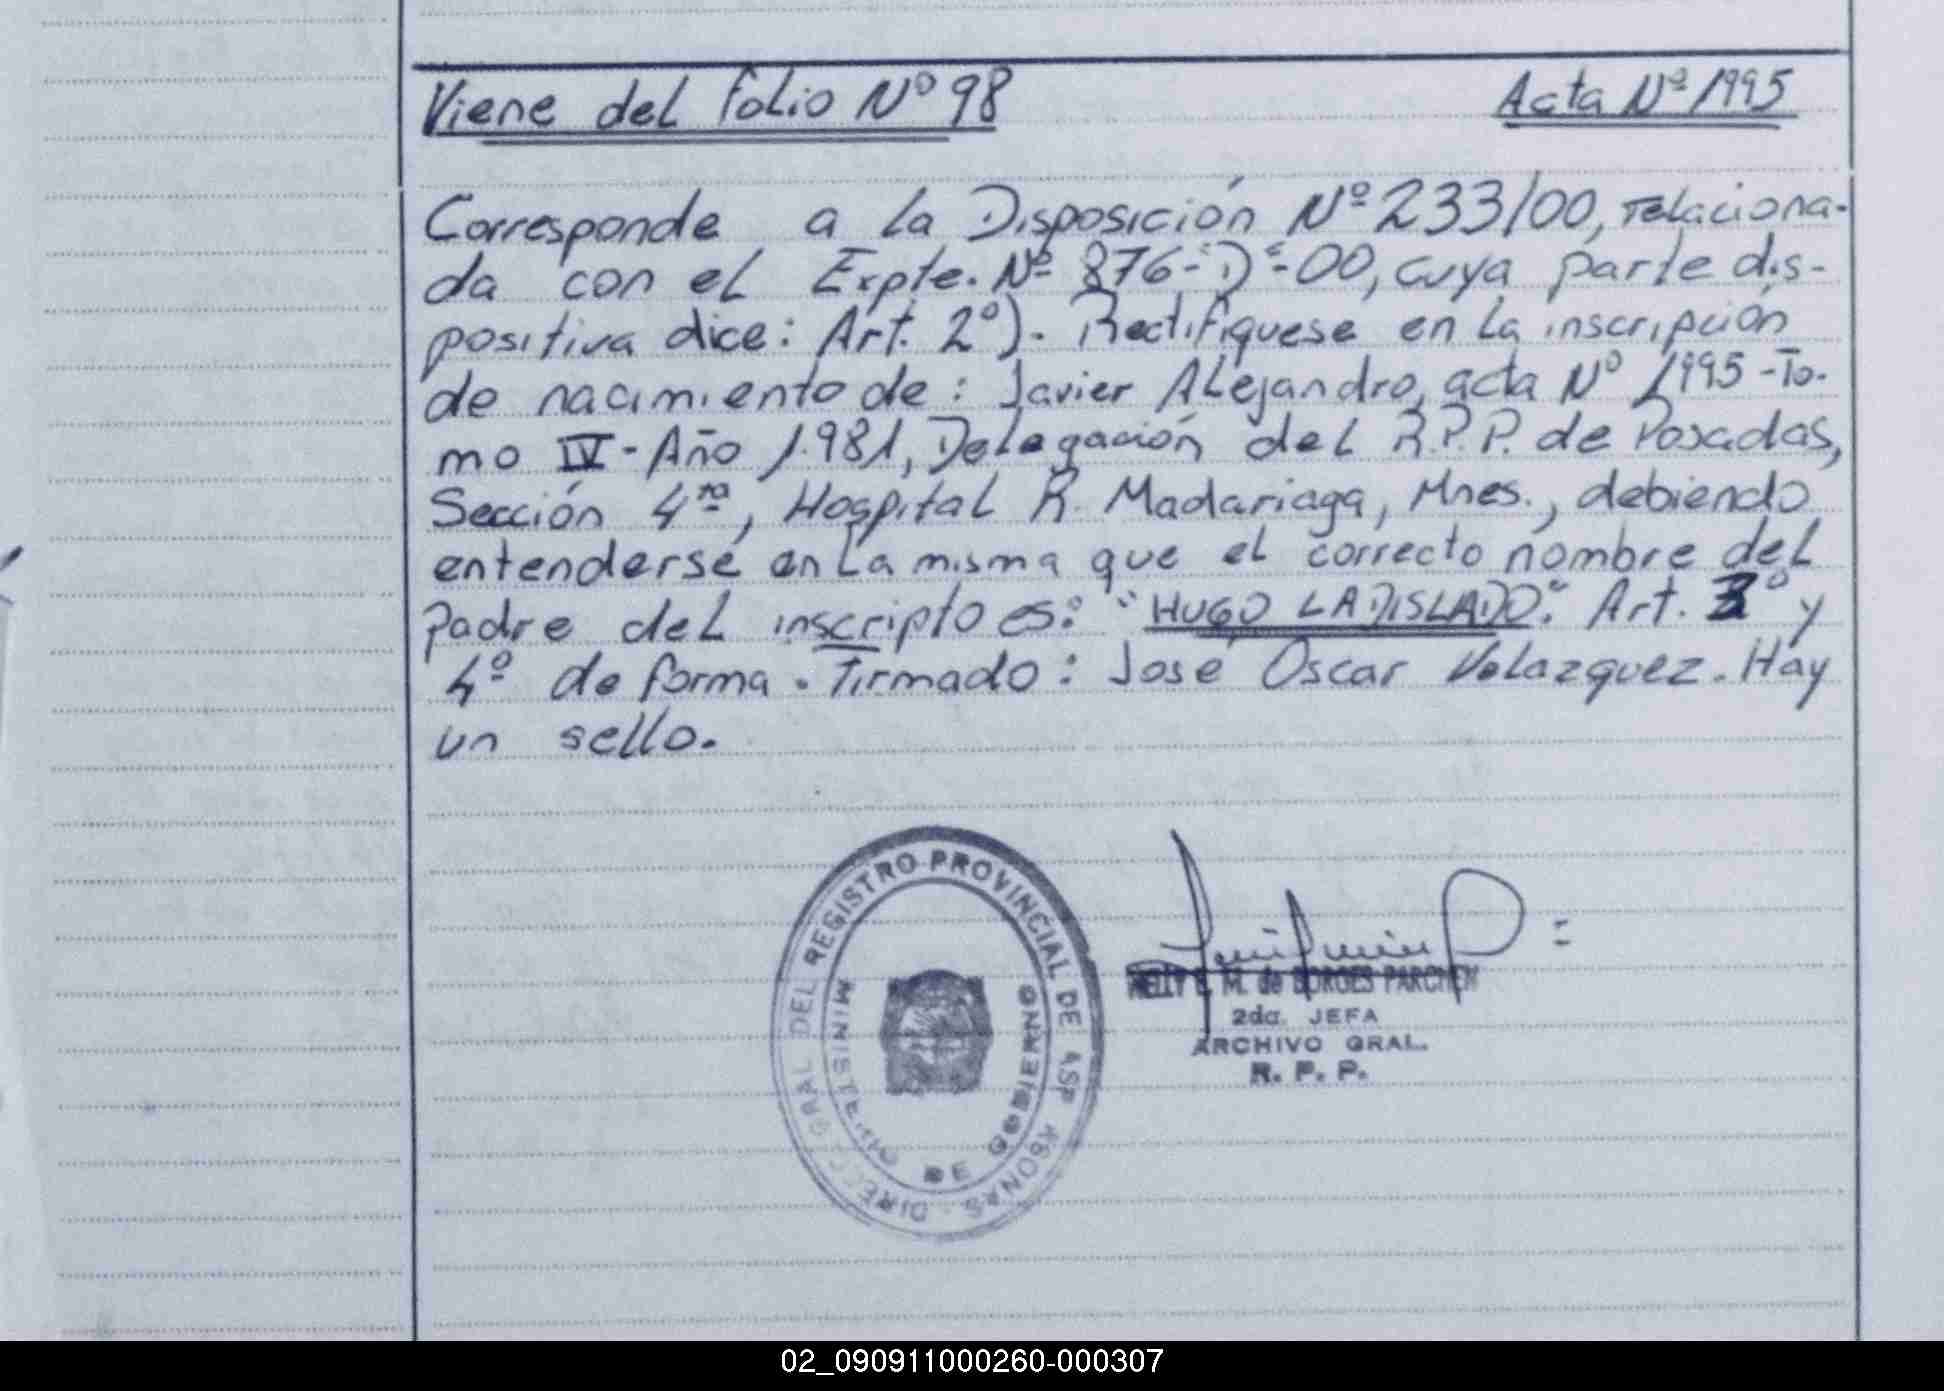 Viene del folio Nº 98
Acta Nº 1995
Corresponde a la Disposición Nº 233/00, relaciona-
da con el Expte. Nº 876-"D"-00, cuya parte dis-
positiva dice: Art. 2º)- Rectifíquese en la inscripción
de nacimiento de: Javier Alejandro, acta Nº 1995 -To-
mo IV - Año 1.981, Delegación del R.P.P. de Posadas,
Sección 4ta, Hospital R. Madariaga, Mnes., debiendo
entenderse en la misma que el correcto nombre del
padre del inscripto es: "HUGO LADISLADO". Art. 3º y
4º de forma. Firmado: José Oscar Velazquez. Hay
un sello.
DIREC. GRAL DEL REGISTRO PROVINCIAL DE
MINISTERIO DE GOBIERNO
M. de BORGES PARCHEN
2da. JEFA
ARCHIVO GRAL.
R. P. P.
02_090911000260-000307